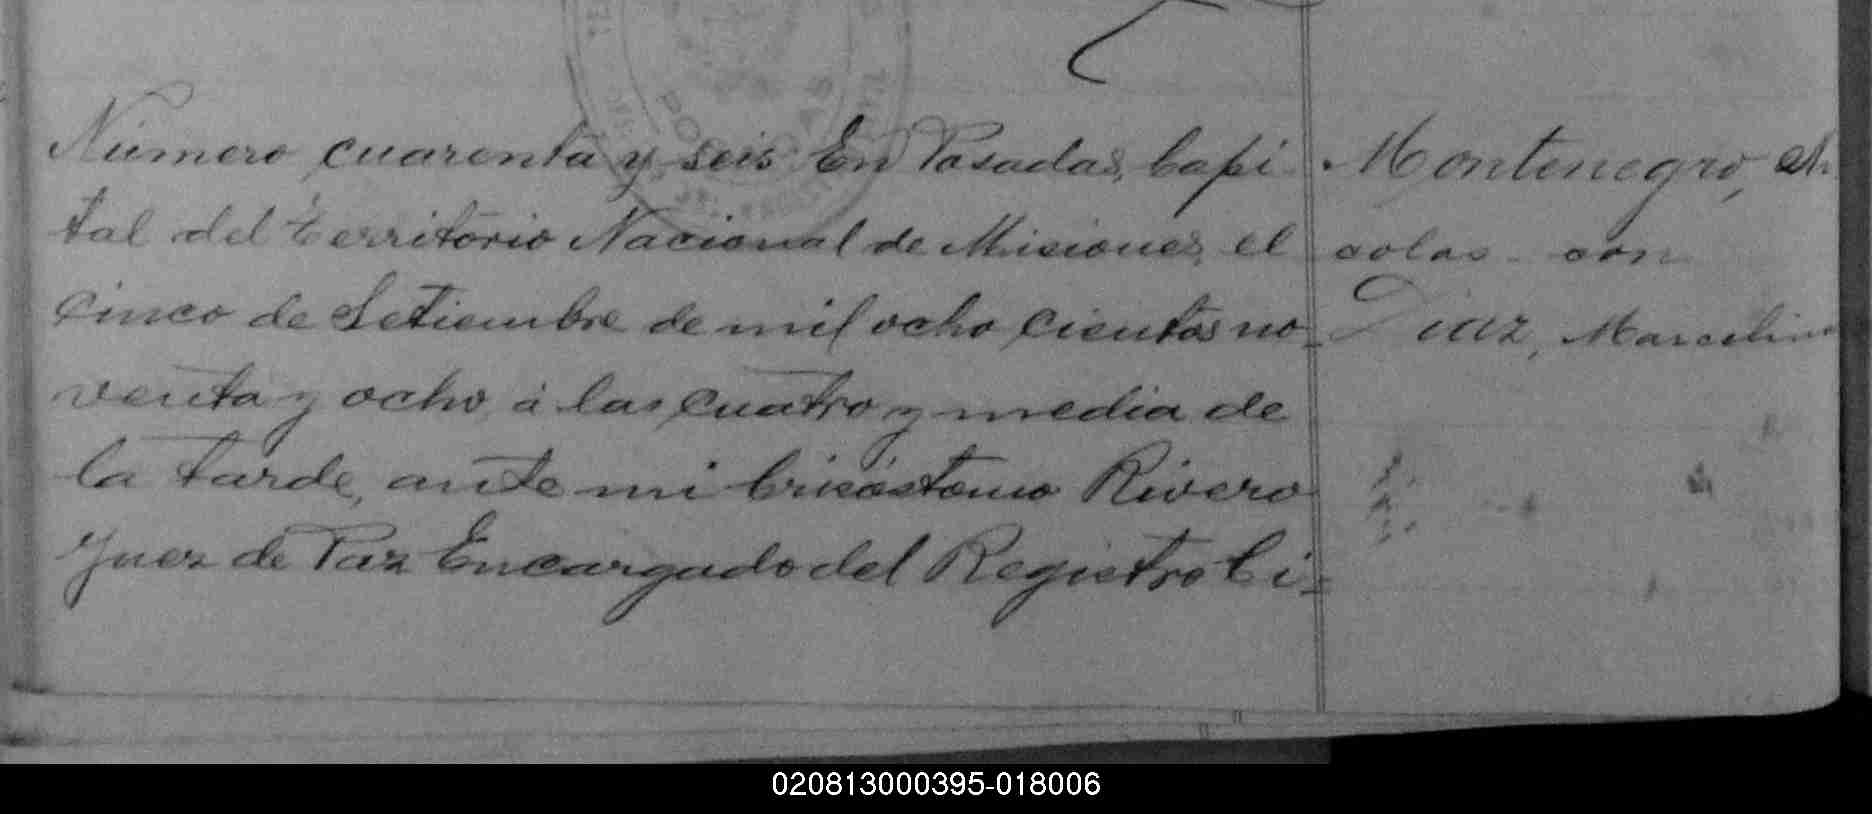 Número cuarenta y seis En Posadas, Capi
tal del Territorio Nacional de Misiones, el
cinco de Setiembre de mil ocho cientos no-
venta y ocho, á las cuatro y media de
la tarde, ante mi Crisóstomo Rivero
Juez de Paz Encargado del Registro Ci-
Montenegro, Ni
colas con
Diaz, Marcelina
020813000395-018006